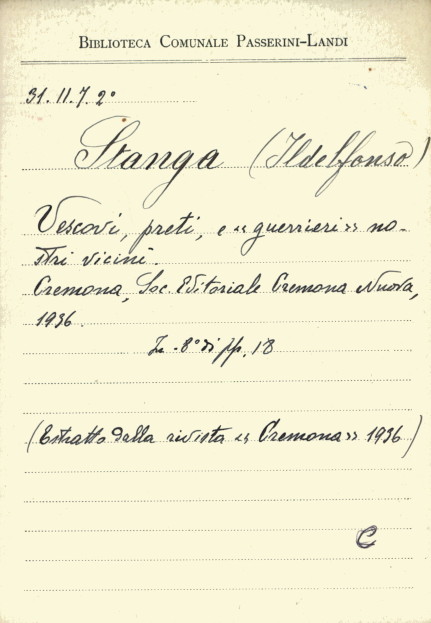 BIBLIOTECA COMUNALE PASSERINI-LANDI
31.II.7.2°
Stanga (Ildelfonso)
Vescovi, preti, e «guerrieri» no-
stri vicini.
Cremona, Soc. Editoriale Cremona Nuova,
1936.
In-8° di pp. 18
(Estratto dalla rivista «Cremona» 1936)
C